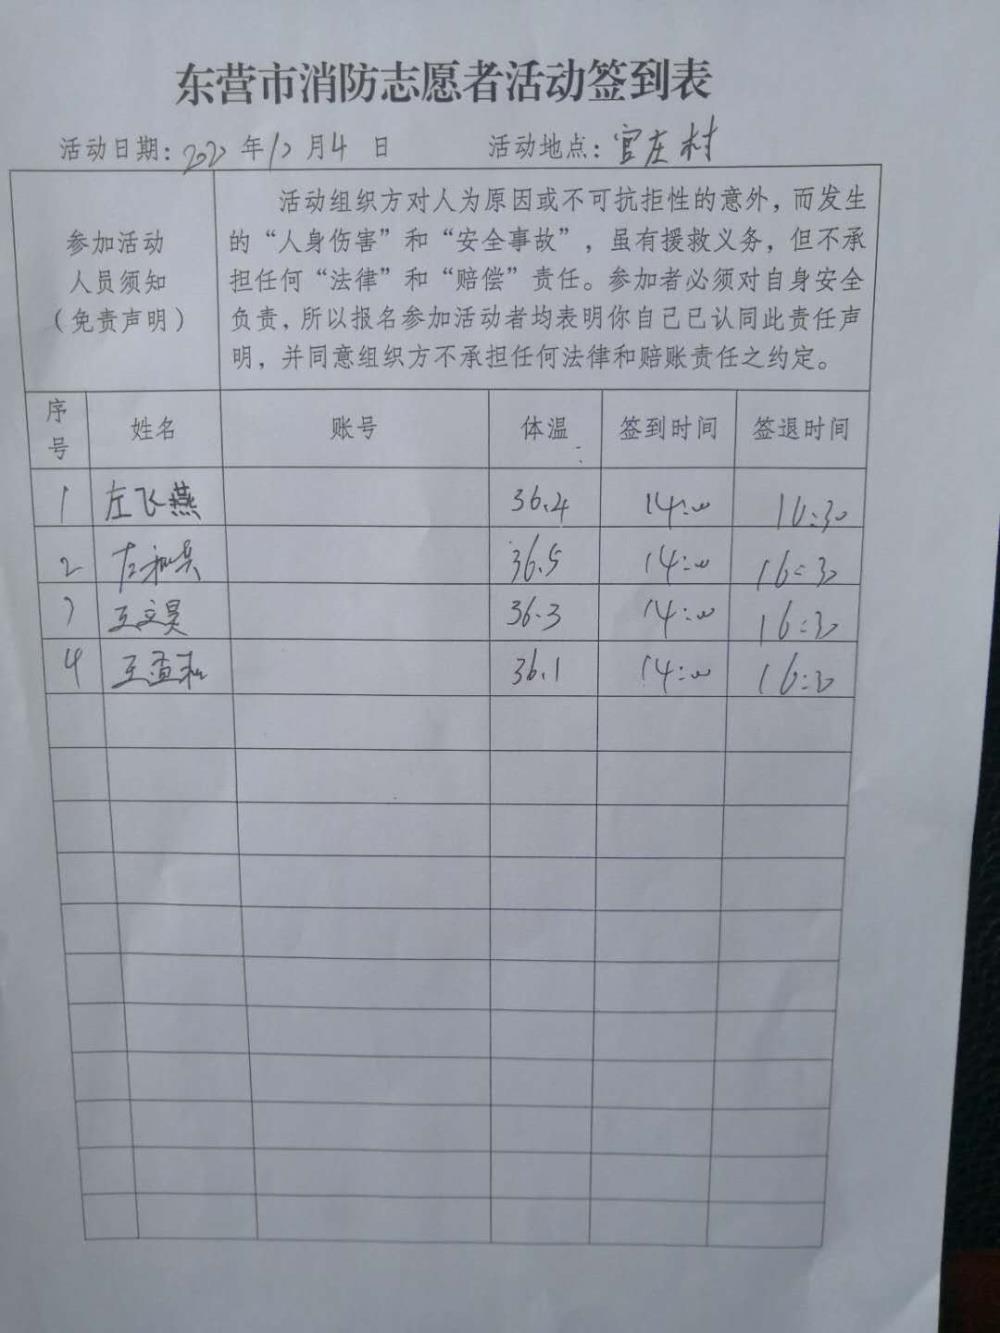 东营市消防志愿者活动签到表
活动日期: 2022 年 12 月 4 日 活动地点: 官庄村
参加活动
人员须知
（免责声明）
活动组织方对人为原因或不可抗拒性的意外，而发生
的“人身伤害”和“安全事故”，虽有援救义务，但不承
担任何“法律”和“赔偿”责任。参加者必须对自身安全
负责，所以报名参加活动者均表明你自己已认同此责任声
明，并同意组织方不承担任何法律和赔账责任之约定。
序号 姓名 账号 体温 签到时间 签退时间
1 左飞燕 36.4 14:00 16:30
2 36.5 14:00 16:30
3 王文昊 36.3 14:00 16:30
4 36.1 14:00 16:30